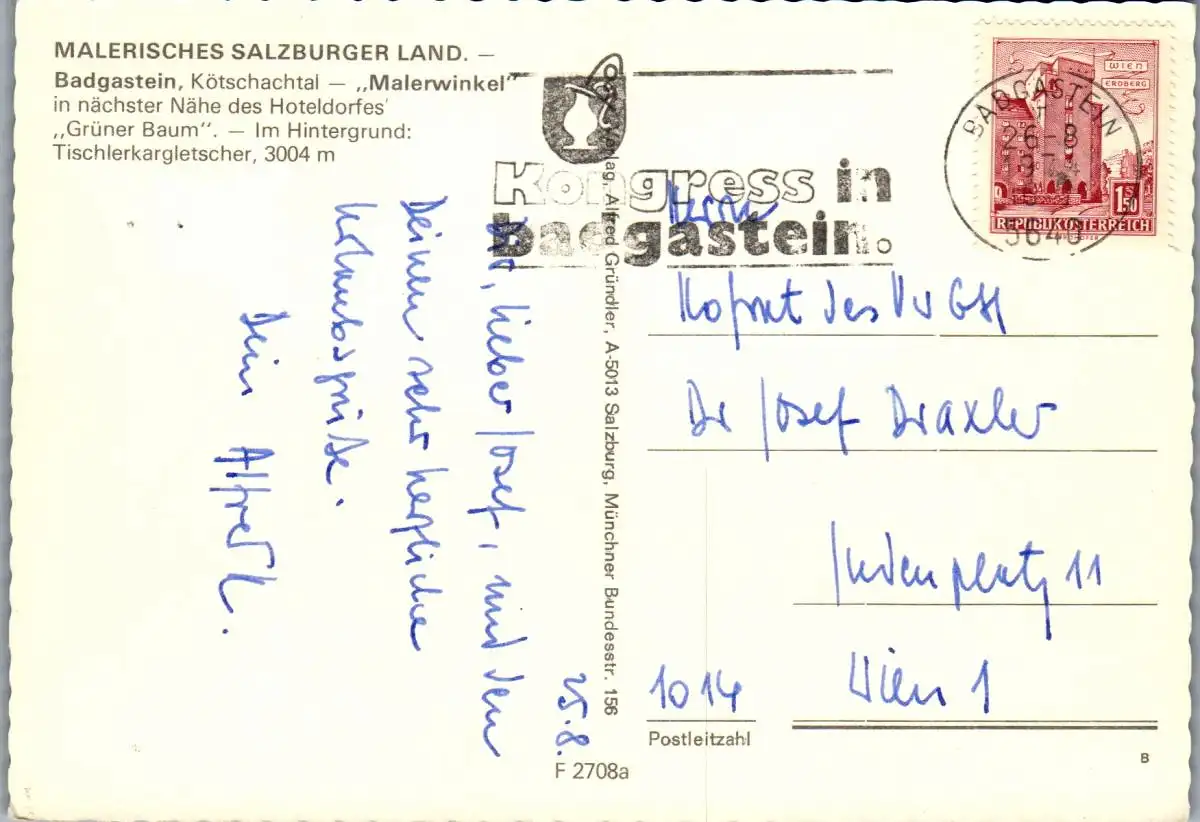 MALERISCHES SALZBURGER LAND. —
Badgastein, Kötschachtal — „Malerwinkel"
in nächster Nähe des Hoteldorfes
„Grüner Baum". — Im Hintergrund:
Tischlerkargletscher, 3004 m
Kongress in
badgastein.
BADGASTEIN
26-8
5640
WIEN
ERDBERG
1 S 50
REPUBLIK ÖSTERREICH
Verlag Alfred Gründler, A-5013 Salzburg, Münchner Bundesstr. 156
25.8.
Dir, lieber Josef, und den
Deinen sehr herzliche
Urlaubsgrüße.
Dein Alfred.
Herrn
Hofrat des VwGH
Dr Josef Draxler
Judenplatz 11
1014 Wien 1
Postleitzahl
F 2708a
B